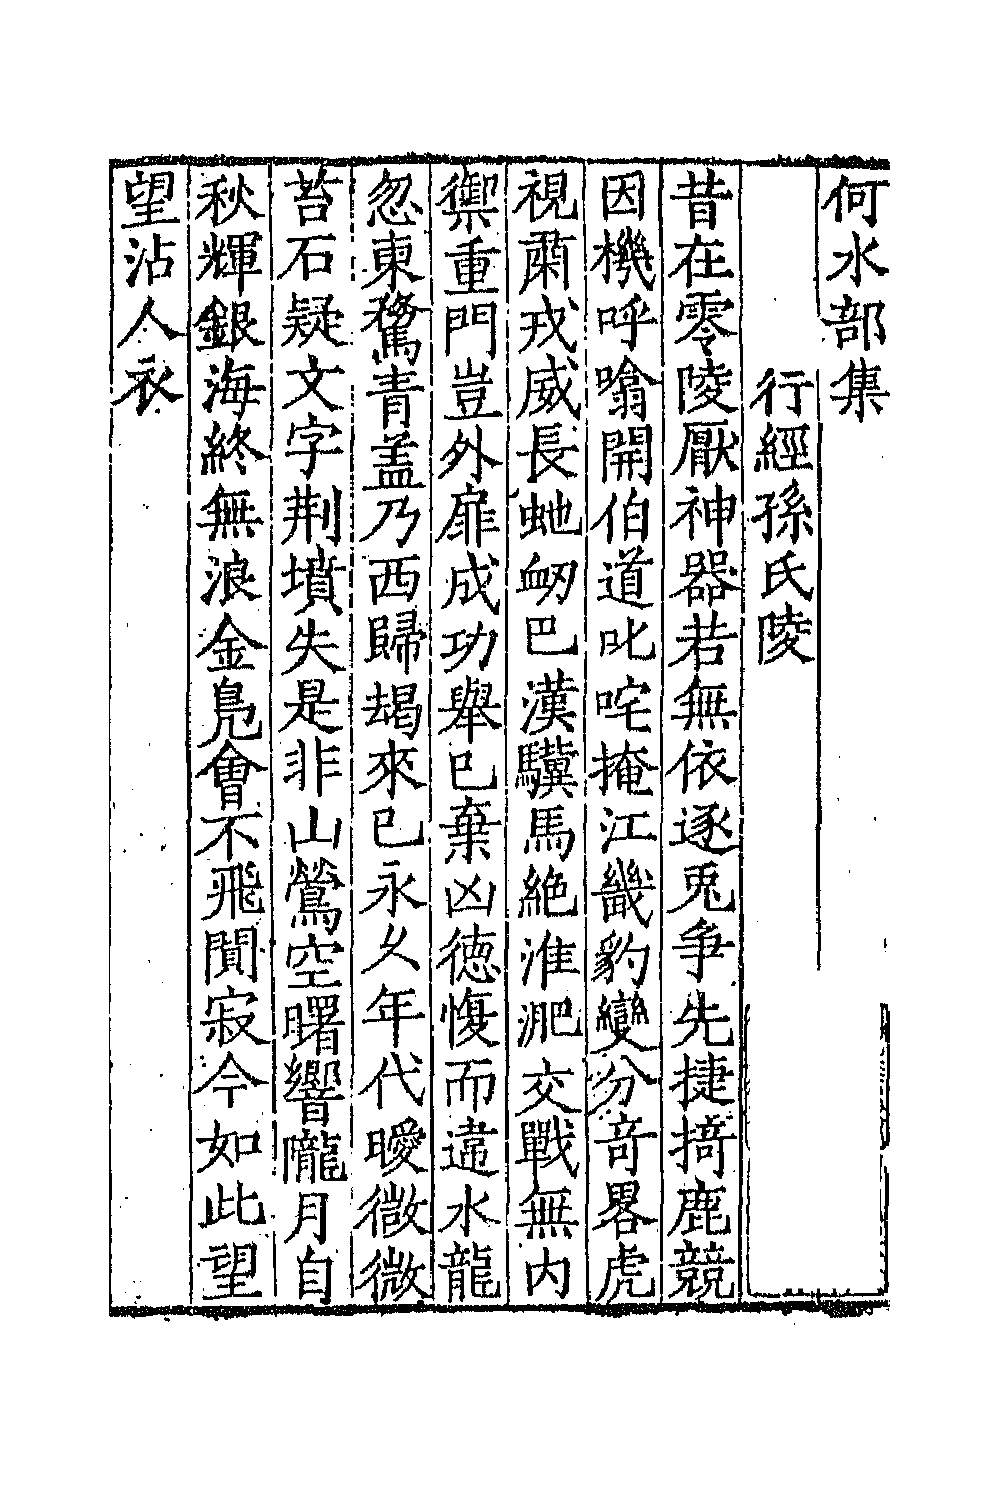 何水部集
行經孫氏陵
昔在零陵厭神器若無依逐兎爭先捷掎鹿競
因機呼噏開伯道叱咤掩江畿豹變分竒畧虎
視肅戎威長虵衂巴漢驥馬絶淮淝交戰無内
禦重門豈外扉成功舉已棄凶德愎而違水龍
忽東騖青盖乃西歸朅來已永乆年代曖微微
苔石疑文字荆墳失是非山鶯空曙響隴月自
秋輝銀海終無浪金鳬會不飛閴寂今如此望
望沾人衣